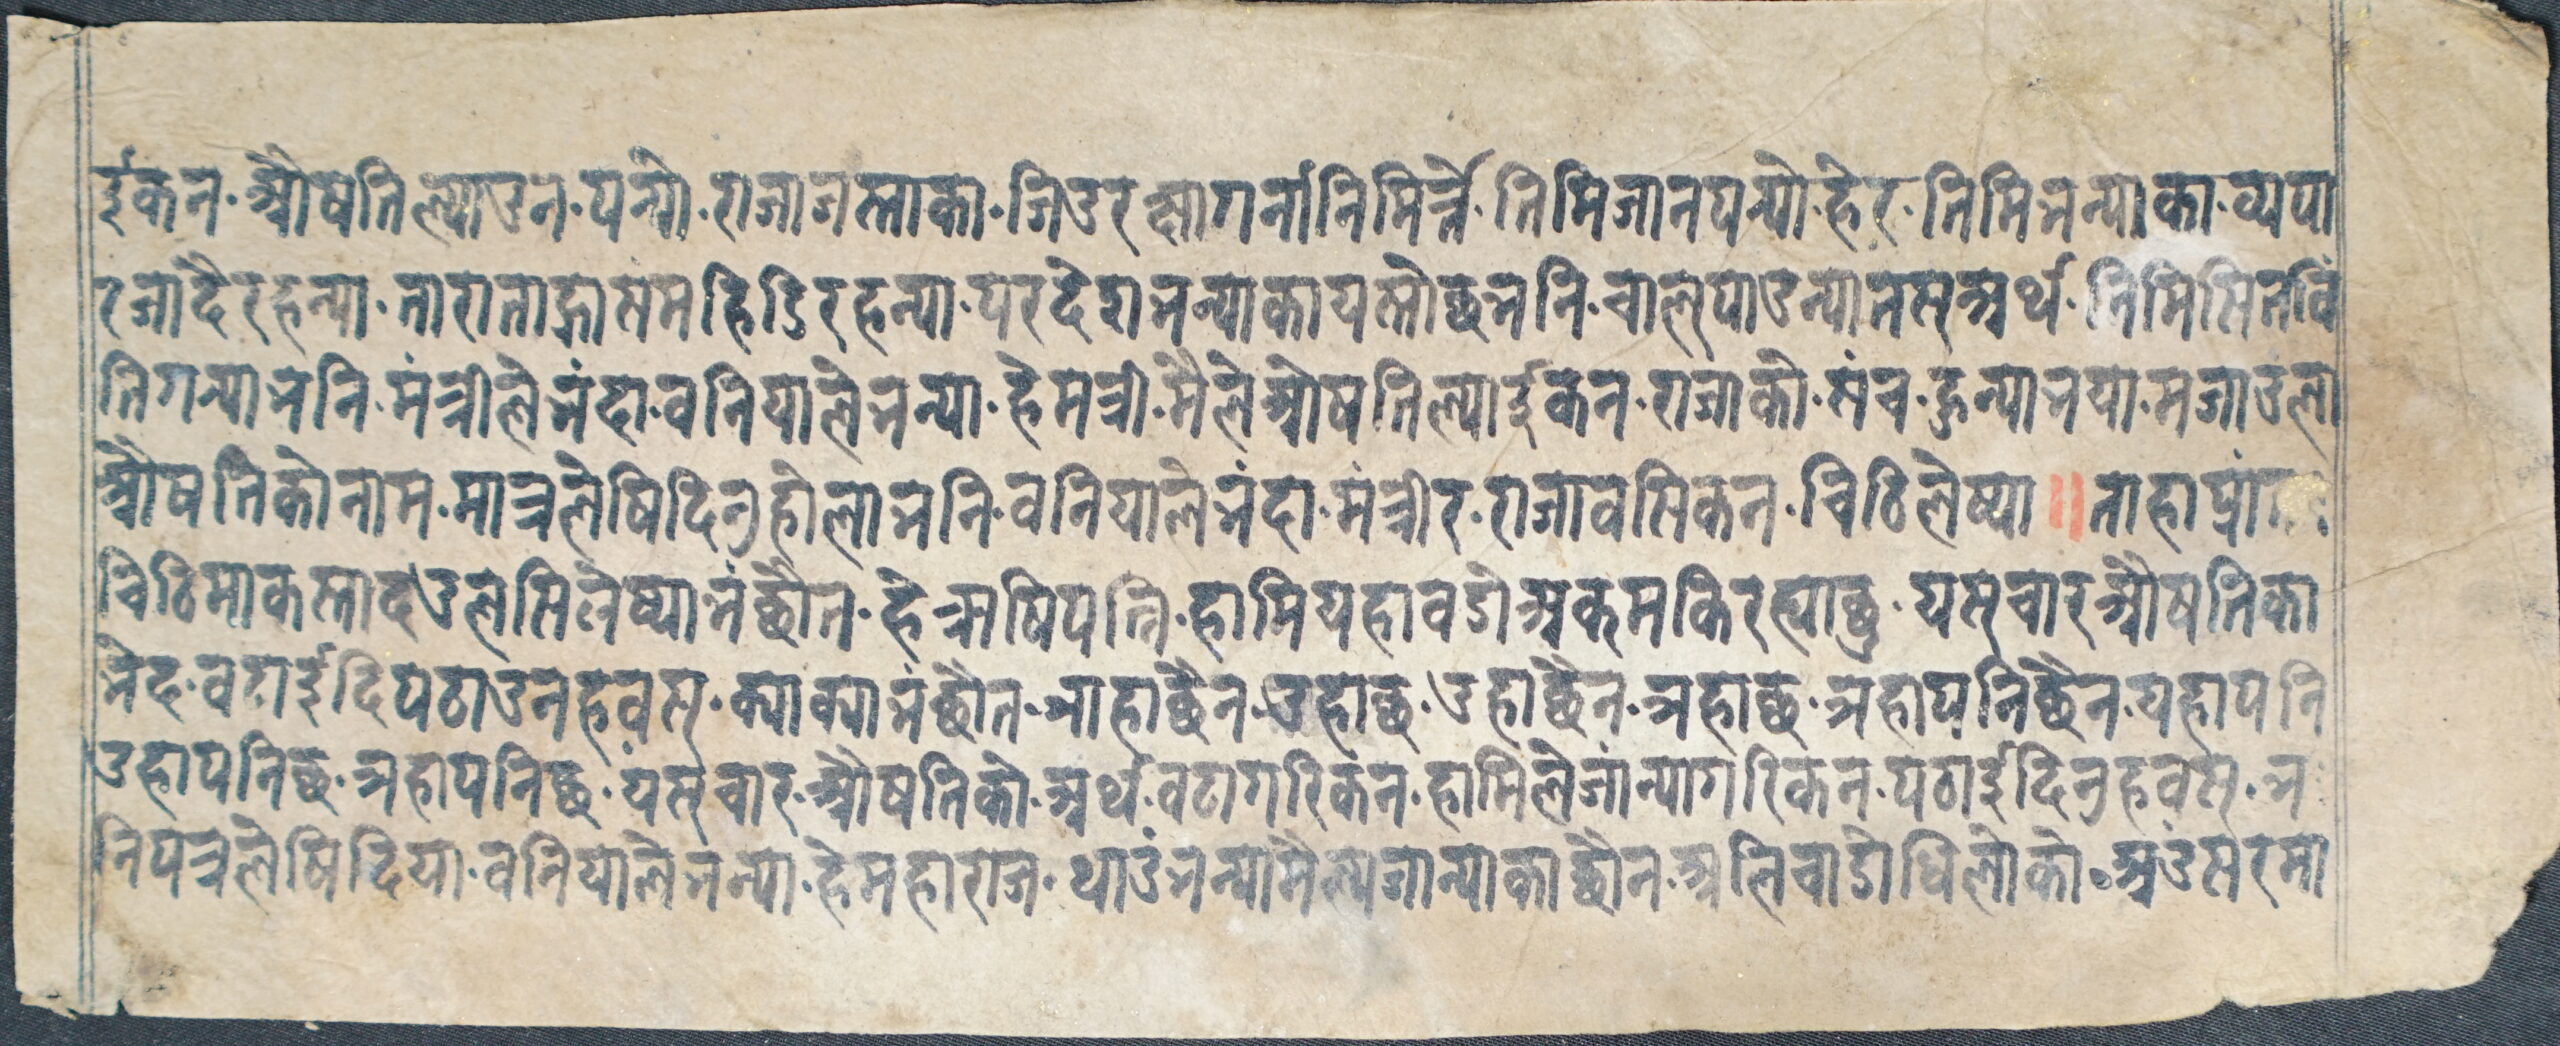 ईकन· औषतिल्याउन· पन्यो· राजाजस्ताका· जिउरक्षागर्नानिमिर्त्ते· तिमिजानपन्यो· हेर· तिमिभन्याका· व्यपा
रजांदैरहन्या· ताराताहासमहिडिरहन्या· परदेशभन्याकायस्तोछभननि· चाल्पाउन्यातस्अर्थ· तिमिसितविं
तिगन्याभनि· मंत्रीलेभंदा· वनियालेभन्या· हेमत्री· मैलेऔषतिल्याईकन· राजाको· संच· हुन्याभया· मजाउंला
औषतिकोनाम· मात्रलेषिदिनुहोलाभनि· वनियालेभंदा· मंत्रीर· राजावसिकन· चिठिलेष्या ॥ ताहाप्रां
चिठिमाकस्तादउलसिलेष्याभंछौत· हेऋषिपत्नि· हामियहावडोअकमकिरह्याछु· यस्चारऔषतिका
भेद· वटाईदिपठाउनहवस्· क्याक्याभंछौत· भाहाछैन· उहाछ· उहाछैन· भहाछ· भहापनिछैन· यहापनि
उहापनिछ· भहापनिछ· यस्चार· औषतिको· अर्थ· वटागरिकन· हामिलेजांन्यागरिकन· पठाईदिनुहवस्· भ
निपत्रलेषिदिया· वनियालेभन्या· हेमहाराज· थाउंभन्यामैल्यजान्याकाछौन· अलिचाडोधिलोको· अउसरमा